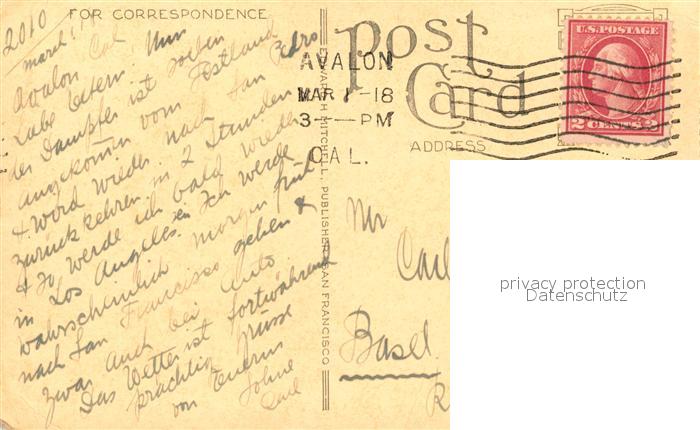 2010
FOR CORRESPONDENCE
March 1.
Avalon Cal. Nun
Liebe Eltern. soeben
der Dampfer ist
angekommen vom Festland
& wird wieder nach San Pedro
zurück kehren in 2 Stunden
& so werde ich bald wieder
in Los Angeles sein Ich werde
wahrscheinlich morgen früh
nach San Francisco gehen &
zwar auch bei Auto.
Das Wetter ist fortwährend
prächtig Grüsse
von Eurem Sohne
Carl
EDWARD H. MITCHELL, PUBLISHER, SAN FRANCISCO
Post
Card
ADDRESS
AVALON
MAR 1-18
3--PM
CAL.
U.S. POSTAGE
2 CENTS 2
Mr
Carl
Basel.
privacy protection
Datenschutz